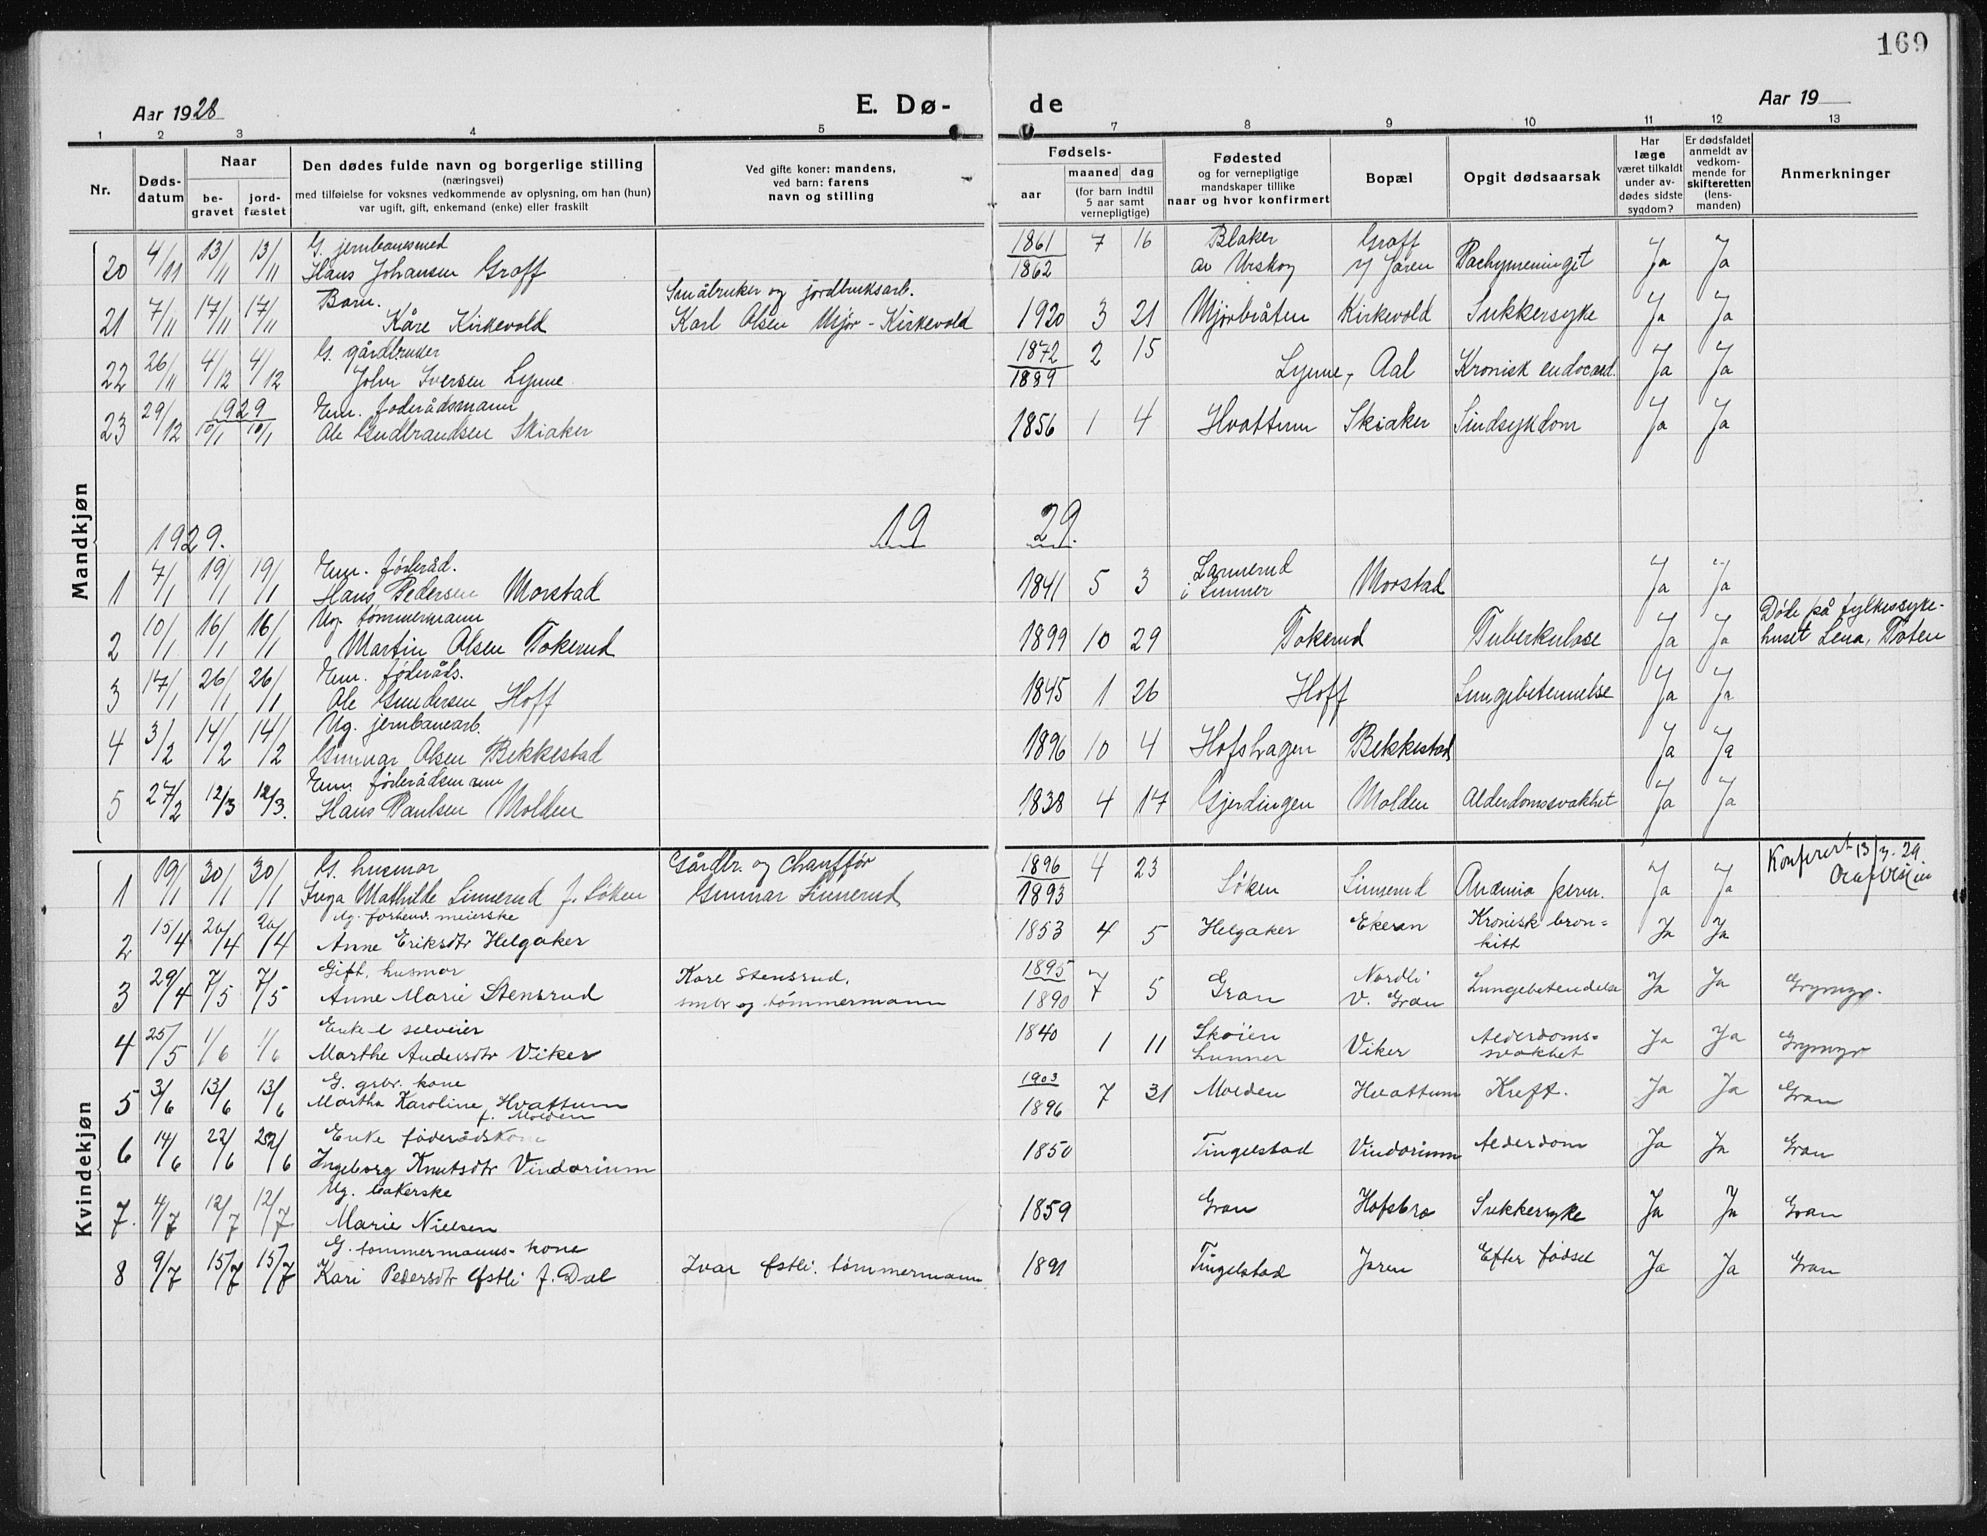 169
Aar 1928
E. Dø-
de
Aar 19
1 2 3 4 5 7 8 9 10 11 12 13
Nr.
Døds-
datum
Naar
be-
gravet
jord-
fæstet
Den dødes fulde navn og borgerlige stilling
(næringsvei)
med tilføielse for voksnes vedkommende av oplysning, om han (hun)
var ugift, gift, enkemand (enke) eller fraskilt
Ved gifte koner: mandens,
ved barn: farens
navn og stilling
Fødsels-
aar
maaned dag
(for barn indtil
5 aar samt
vernepligtige)
Fødested
og for vernepligtige
mandskaper tillike
naar og hvor konfirmert
Bopæl
Opgit dødsaarsak
Har
læge
været tilkaldt
under av-
dødes sidste
sygdom?
Er dødsfaldet
anmeldt av
vedkom-
mende for
skifteretten
(lens-
manden)
Anmerkninger
Mandkjøn
G. jernbanesmed 1861 Blaker Graff
20 4/11 13/11 13/11 Hans Johansen Graff 1862 7 16 av Urskog v/ Jaren Pachymeningit Ja Ja
Barn. Småbruker og jordbruksarb.
21 7/11 17/11 17/11 Kåre Kirkevold Karl Olsen Mjør-Kirkevold 1920 3 21 Mjørbråten Kirkevold Sukkersyke Ja Ja
G. gårdbruker 1872
22 26/11 4/12 4/12 John Iversen Lynne 1889 2 15 Lynne, Aal Kronisk endocard. Ja Ja
Em. foderådsmann
1929
23 29/12 10/1 10/1 Ole Gudbrandsen Skiaker 1856 1 4 Hvattum Skiaker Sindsykdom Ja Ja
1929. 19 29.
Em. føderåd. Lannerud
1 7/1 19/1 19/1 Hans Pedersen Morstad 1841 5 3 i Lunner Morstad Ja Ja
Ug. tømmermann Døde på fylkessyke-
2 10/1 16/1 16/1 Martin Olsen Tokerud 1899 10 29 Tokerud Tuberkulose Ja Ja huset Lena, Toten
Em. føderåds.
3 17/1 26/1 26/1 Ole Gundersen Hoff 1845 1 26 Hoff Lungebetennelse Ja Ja
Ug. jernbanearb.
4 3/2 14/2 14/2 Gunnar Olsen Bekkestad 1896 10 4 Hofshagen Bekkestad Ja Ja
Em. føderådsmann
5 27/2 12/3 12/3. Hans Paulsen Molden 1838 4 17 Gjerdingen Molden Alderdomssvakhet Ja Ja
Kvindekjøn
G. husmor Gårdbr. og chauffør 1896 Konferert 13/3. 29.
1 19/1 30/1 30/1 Inga Mathilde Linnerud f. Søken Gunnar Linnerud 1893 4 23 Søken Linnerud Anæmia pern. Ja Ja
Ug. forhenv. meierske Kronisk bron-
2 15/4 26/4 26/4 Anne Eriksdtr Helgaker 1853 4 5 Helgaker Ekeren kitt Ja Ja
Gift, husmor Kare Stensrud, 1895 Nordli
3 29/4 7/5 7/5 Anne Marie Stensrud smbr og tömmermann 1890 7 5 Gran V. Gran Lungebetendelse Ja Ja Grymyr.
Enke e selveier Skøien Alderdoms-
4 25/5 1/6 1/6 Marthe Andersdtr Viker 1840 1 11 Lunner Viker svakhet Ja Ja Grymyr
G. grbr. kone 1903
5 3/6 13/6 13/6 Martha Karoline Hvattum 1896 7 31 Molden Hvattum Kreft. Ja Ja Gran
f. Molden
Enke føderådskone
6 14/6 22/6 22/6 Ingeborg Knutsdtr Vindorium 1850 Tingelstad Vindorium Alderdom Ja Ja Gran
Ug. bakerske
7. 4/7 12/7 12/7 Marie Nielsen 1859 Gran Hofsbro Sukkersyke Ja Ja Gran
G. tømmermanns-kone
8 9/7 15/7 15/7 Kari Pedersdtr Østli f. Dal Ivar Østli. tømmermann 1891 Tingelstad Jaren Efter fødsel Ja Ja Gran